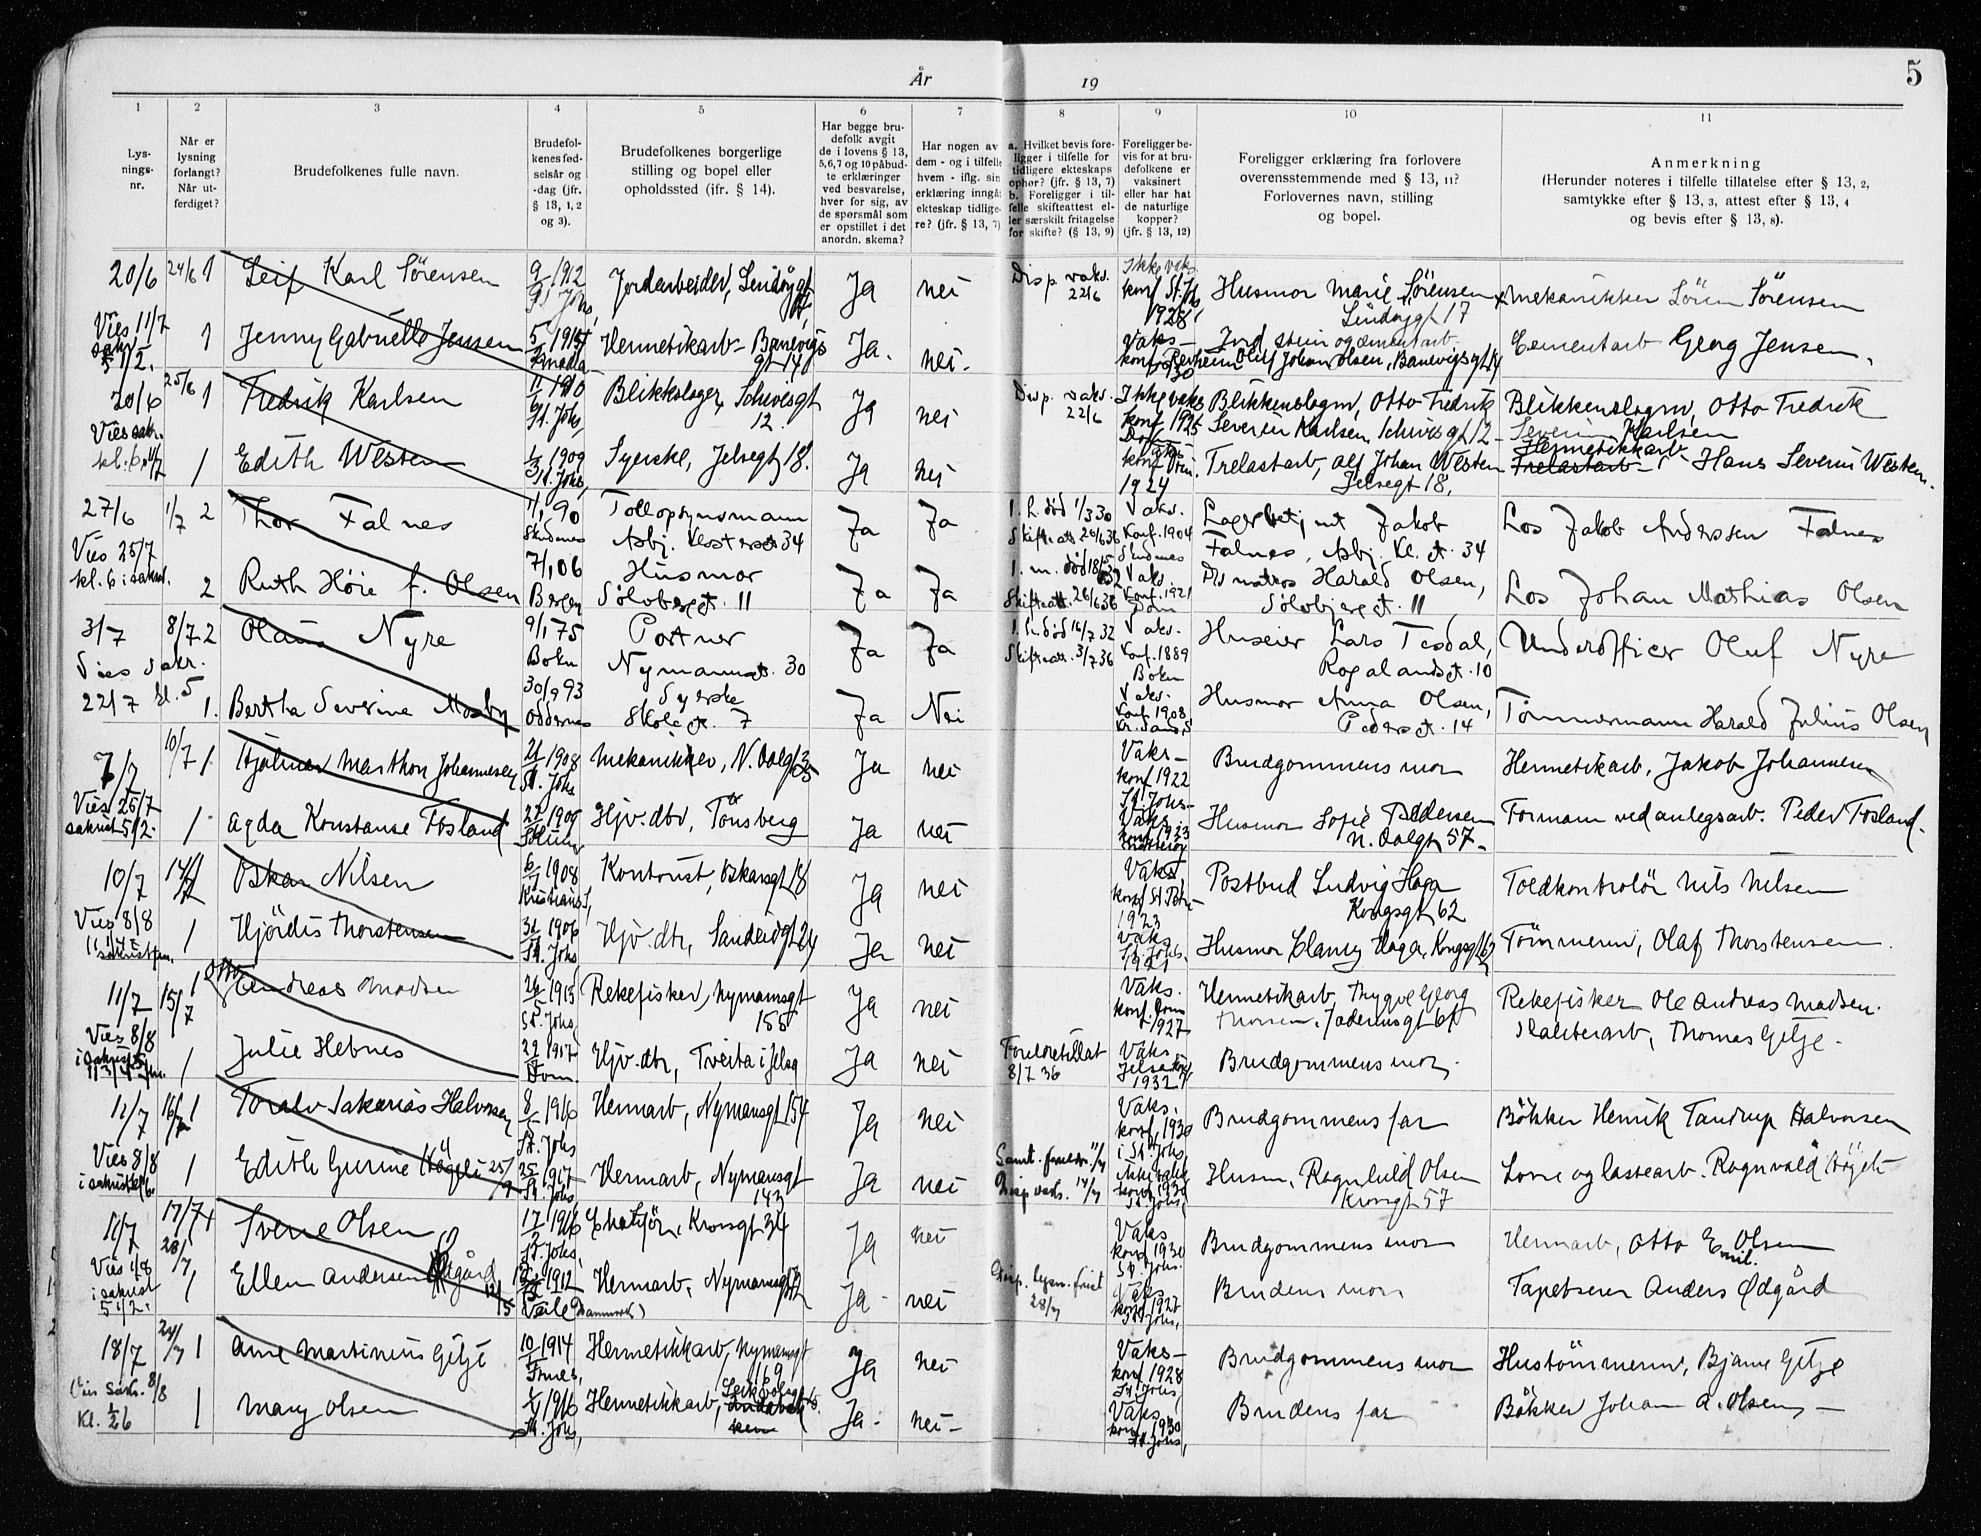 År 19
5
1 2 3 4 5 6 7 8 9 10 11
Lys-
nings-
nr.
Når er
lysning
forlangt?
Når ut-
ferdiget?
Brudefolkenes fulle navn.
Brudefol-
kenes fød-
selsår og
-dag (jfr.
§ 13, 1, 2
og 3).
Brudefolkenes borgerlige
stilling og bopel eller
opholdssted (jfr. § 14).
Har begge bru-
defolk avgit
de i lovens § 13,
5,6,7 og 10 påbud-
te erklæringer
ved besvarelse,
hver for sig, av
de spørsmål som
er opstillet i det
anordn. skema?
Har nogen av
dem - og i tilfelle
hvem - iflg. sin
erklæring inngåt
ekteskap tidlige-
re? (jfr. § 13, 7)
a. Hvilket bevis fore-
ligger i tilfelle for
tidligere ekteskaps
ophør? (jfr. § 13, 7)
b. Foreligger i til-
felle skifteattest el-
ler særskilt fritagelse
for skifte? (§ 13, 9)
Foreligger be-
vis for at bru-
defolkene er
vaksinert
eller har hat
de naturlige
kopper?
(jfr. § 13, 12)
Foreligger erklæring fra forlovere
overensstemmende med § 13, 11?
Forlovernes navn, stilling
og bopel.
Anmerkning
(Herunder noteres i tilfelle tillatelse efter § 13, 2,
samtykke efter § 13, 3, attest efter § 13, 4
og bevis efter § 13, 8).
20/6 24/6 1 Leif Karl Sörensen 9/ 1912 St. Johs, Jordarbeider, Ja nei Disp vaks. 22/6 Ikke vaks. konf St. Johs 1928 Husmor Marie Sörensen Mekanikker Sören Sörensen
Vies 11/7 5 1/2. 1 Jenny Gabrielle Jensen Hermetikarb- Banevigs gt 14 Ja. nei. Vaks- Oluf Johan Olsen, Banevigsgt 14 Cementarb Georg Jensen.
20/6 25/6 1 Fredrik Karlsen 1910 St. Johs, Blikkslager, 12. Ja nei Disp. vaks. 22/6 Ikke vaks konf 1925 Dom Blikkenslager, Otto Fredrik Severin Karlsen, 12- Blikkenslager, Otto Fredrik Severin Karlsen
Vies sakr. kl. 6, 1 Edith Westen 1909 St. Johs, Syerske, Jelsegt 18. Ja nei Vaks konf 1924 Trelastarb, Alf Johan Westen Jelsegt 18, Hermetikkarb Trelastarb Hans Severin Westen.
27/6 1/7 2 Thor Falnes 90 Skudenes Tollopsynsmann Asbj. Klosterst 34 Ja Ja 1. h. död 1/3 30 Skifteatt. 26/6 36 Vaks. Konf. 1904 Skudenes Lagerbetjent Jakob Falnes, Asbj. Kl. st. 34 Los Jakob Anderssen Falnes
Vies 25/7 kl. 6 i sakrst. 2 Ruth Höie f. Olsen 7/1 06 Bergen Husmor Sölvbergst. 11 Ja Ja 1. m. död 18/5 32 Skifteatt. 26/6 36 Vaks. Konf. 1921 Dom Harald Olsen, Sölvbjergst. 11 Los Johan Mathias Olsen
3/7 8/7 2 Olaus Nyre 9/1 75 Bokn Portner Nymannst. 30 Ja Ja 1. h. död 16/7 32 Skifteatt. 3/7 36 Vaks. Konf. 1889 Bokn Huseier Lars Tesdal, Rogalandst. 10 Underofficer Oluf Nyre
Vies sakr. 22/7 kl. 5 1. Bertha Severine Mosby 30/9 93 Oddernes Syerske Skolest. 7 Ja Nei Vaks. Konf. 1908, Kr. Sand.S Husmor Anna Olsen, Pedersst. 14 Tömmermann Harald Julius Olsen
7/7 10/7 1 Hjalmar Marthon Johannesen 1908 St. Johs Mekanikker, N. Dalgt 35 Ja nei Vaks- konf 1922 St. Johs- Brudgommens mor Hermetikarb, Jakob Johannesen
Vies 25/7 sakrist 5 1/2. 1 Agda Konstanse Fosland 1909 Hjv. dtr, Tönsberg Ja nei Vaks. konf 1923 Husmor Sofie Pedersen N. Dalgt 57- Formann ved anlegsarb. Peder Fosland.
10/7 14/7 1 Oskar Nilsen 6/ 1908 Kristians, Kontorist, Oskarsgt 18 Ja nei Vaks konf St Petri 1923 Postbud Ludvig Haga Kongsgt 62 Toldkontrolör Nils Nilsen
Vies 8/8 1 Hjördis Thorstensen 1906 St. Johs, Hjv. dtr, Sandeidgt 24 Ja nei Vaks, St. Johs, 1921 Husmor Clancy Haga, Kongsgt 62 Tömmerm, Olaf Thorstensen.
11/7 15/7 1 Otto Andreas Madsen 1915 St. Johs Rekefisker, Nymansgt 155 Ja nei Vaks. konf. Dom 1927 Hermetikarb, Thygve Georg Thorsen, Jæderensgt 61 Rekefisker Ole Andreas Madsen.
Vies 8/8 1 Julie Hebnes 1917 Dom. Hjv. dtr, Tveita i Jelsa Ja nei Foreldretillat 8/7 36 Vaks Jelsa 1932 Brudgommens mor. Thomas Gilje-
12/7 16/7 1 Toralv Sakarias Halvorsen 8/ 1916 St. Johs Hermarb, Nymansgt 154 Ja nei Vaks. konf 1930 i St. Johs, Brudgommens far Bökker Henrik Tandrup Halvorsen
Vies 8/8 1 Edith Gurine 25/9 1917 St. Johs Hermarb, Nymansgt 143 Ja nei Disp vaks. 14/7 Ikke vaks konf 1930 St. Johs, Husm, Ragnhild Olsen Kronsgt 57 Losse og lastearb. Ragnvald
11/7 17/7 1 Sverre Olsen 17/ 1916 St. Johs, Chafför, Kronsgt 34 Ja nei Vaks konf 1930 St. Johs. Brudgommens mor Hermarb, Otto Emil Olsen
Vies 1/8 i sakrist 5 1/2. 28/7 1 Ellen Andersen Ødgård 12/5 1912 Veile (Danmark) Hermarb, Nymansgt Ja- nei Disp. lysn. frist 28/7 Vaks konf 1927 St. Johs, Brudens mor Tapetserer Anders Ødgård
18/7 24/7 1 Arne Martinius Gilje 10/ 1914 Hermetikkarb, Nymansgt 169 Ja nei Vaks- konf 1928 St. Johs, Brudgommens mor Hustömmerm, Bjarne Gilje
Vies sakr. 8/8 Kl. 1/2 6 1 Mary Olsen 1916 St. Johs, Hermetikkarb, Ja- nei- Vaks, konf 1930 St. Johs, Brudens far Bökker Johan A. Olsen, -